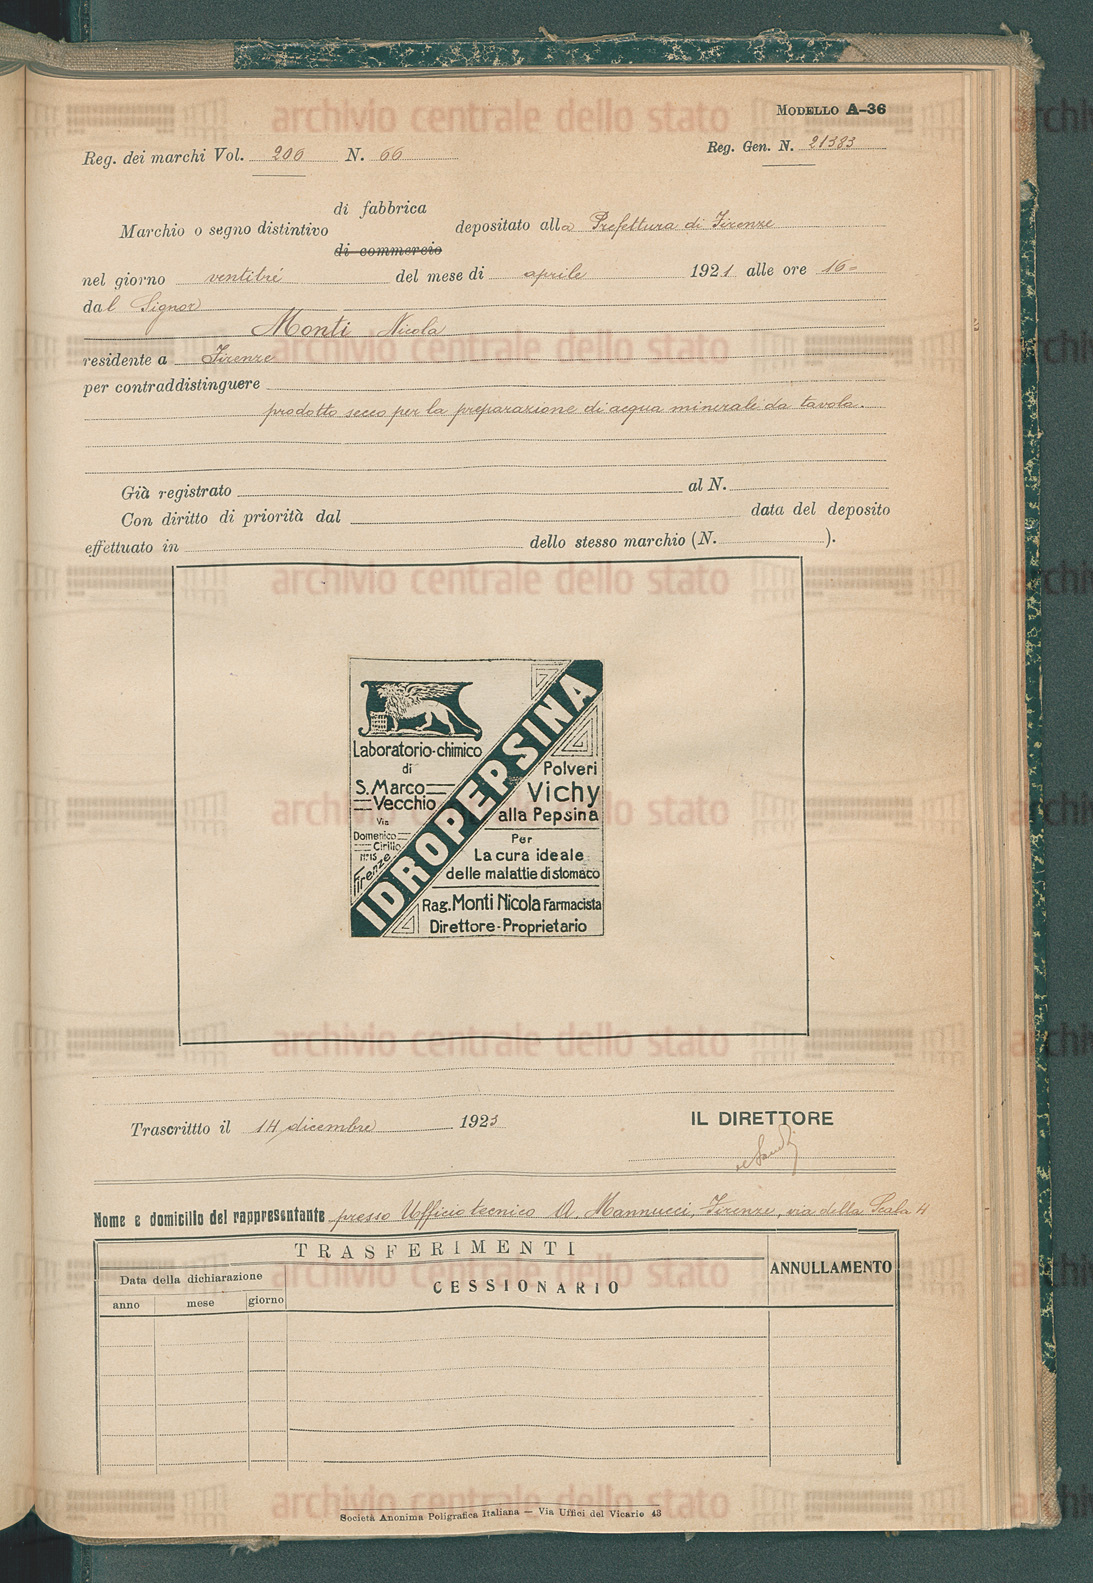 MODELLO A-36
Reg. dei marchi Vol. 206 N. 66
Reg. Gen. N. 21383
di fabbrica
Marchio o segno distintivo depositato alla Prefettura di Firenze
di commercio
nel giorno ventitré del mese di aprile 1921 alle ore 16=
dal Signor
Monti Nicola
residente a Firenze
per contraddistinguere
prodotto secco per la preparazione di acqua minerale da tavola.
Già registrato al N.
Con diritto di priorità dal data del deposito
effettuato in dello stesso marchio (N. ).
IDROPEPSINA
Laboratorio-chimico
di
S. Marco
Vecchio
Via
Domenico
Cirillo
Nº15
Firenze
Polveri
Vichy
alla Pepsina
Per
La cura ideale
delle malattie di stomaco
Rag. Monti Nicola Farmacista
Direttore-Proprietario
Trascrittto il 14 dicembre 1923
IL DIRETTORE
Nome e domicilio del rappresentante presso Ufficio tecnico A. Mannucci, Firenze, via della Scala 4
TRASFERIMENTI
ANNULLAMENTO
Data della dichiarazione
CESSIONARIO
anno mese giorno
Società Anonima Poligrafica Italiana — Via Uffici del Vicario 43
archivio centrale dello stato
archivio centrale dello stato
archivio centrale dello stato
archivio centrale dello stato
archivio centrale dello stato
archivio centrale dello stato
archivio centrale dello stato